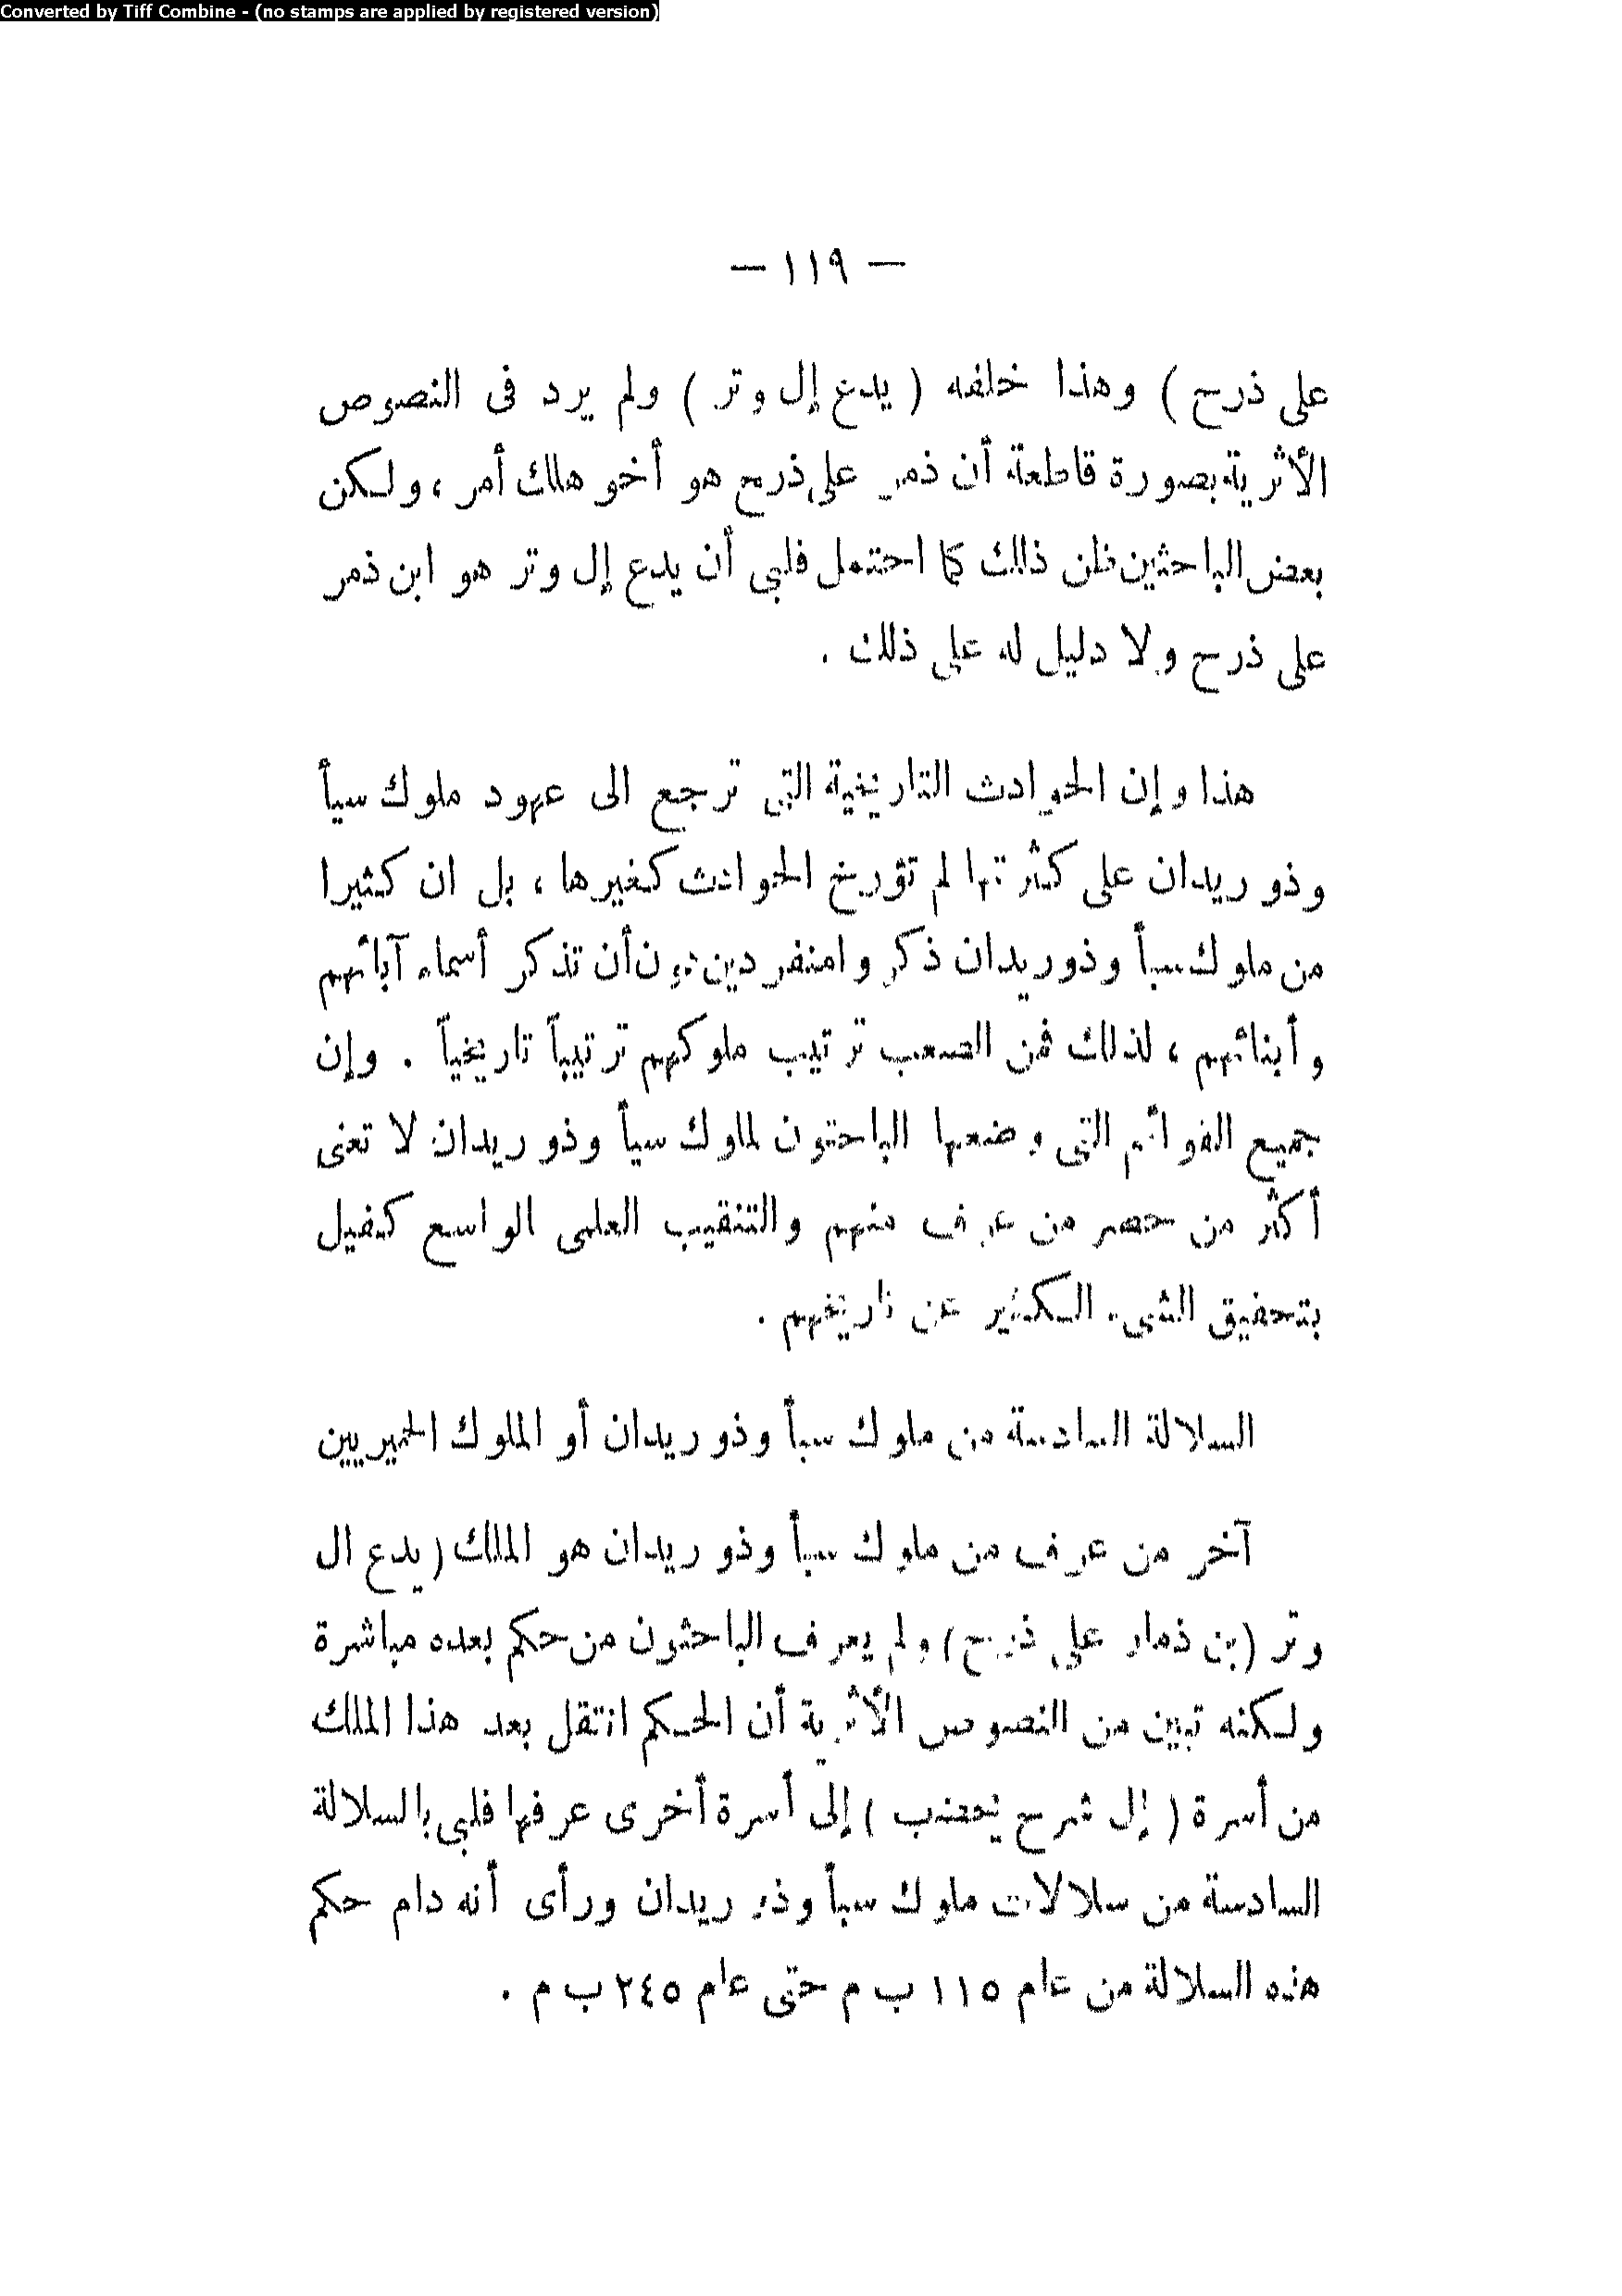 Converted by Tiff Combine - (no stamps are applied by registered version)
— ١١٩ —
على ذرح ) وهذا خلفه ( يدع إل وتر ) ولم يرد فى النصوص
الأثرية بصورة قاطعة أن ذمر على ذرح هو أخو هلك أمر ، ولكن
بعض الباحثين ظن ذلك كما احتمل فلبى أن يدع إل وتر هو ابن ذمر
على ذرح ولا دليل له على ذلك .
هذا وإن الحوادث التاريخية التى ترجع الى عهود ملوك سبأ
وذو ريدان على كثرتها لم تؤرخ الحوادث كغيرها ، بل ان كثيرا
من ملوك سبأ وذو ريدان ذكروا منفردين دون أن تذكر أسماء آبائهم
وأبنائهم ، لذلك فمن الصعب ترتيب ملوكهم ترتيباً تاريخياً . وإن
جميع القوائم التى وضعها الباحثون لملوك سبأ وذو ريدان لا تعنى
أكثر من حصر من عرف منهم والتنقيب العلمى الواسع كفيل
بتحقيق الشىء الكثير عن تاريخهم .
السلالة السادسة من ملوك سبأ وذو ريدان أو الملوك الحميريين
آخر من عرف من ملوك سبأ وذو ريدان هو الملك ( يدع ال
وتر (بن ذمار على ذرح) ولم يعرف الباحثون من حكم بعده مباشرة
ولكنه تبين من النصوص الأثرية أن الحكم انتقل بعد هذا الملك
من أسرة ( إل شرح يحضب ) إلى أسرة أخرى عرفها فلبى بالسلالة
السادسة من سلالات ملوك سبأ وذو ريدان ورأى أنه دام حكم
هذه السلالة من عام ١١٥ ب م حتى عام ٢٤٥ ب م .